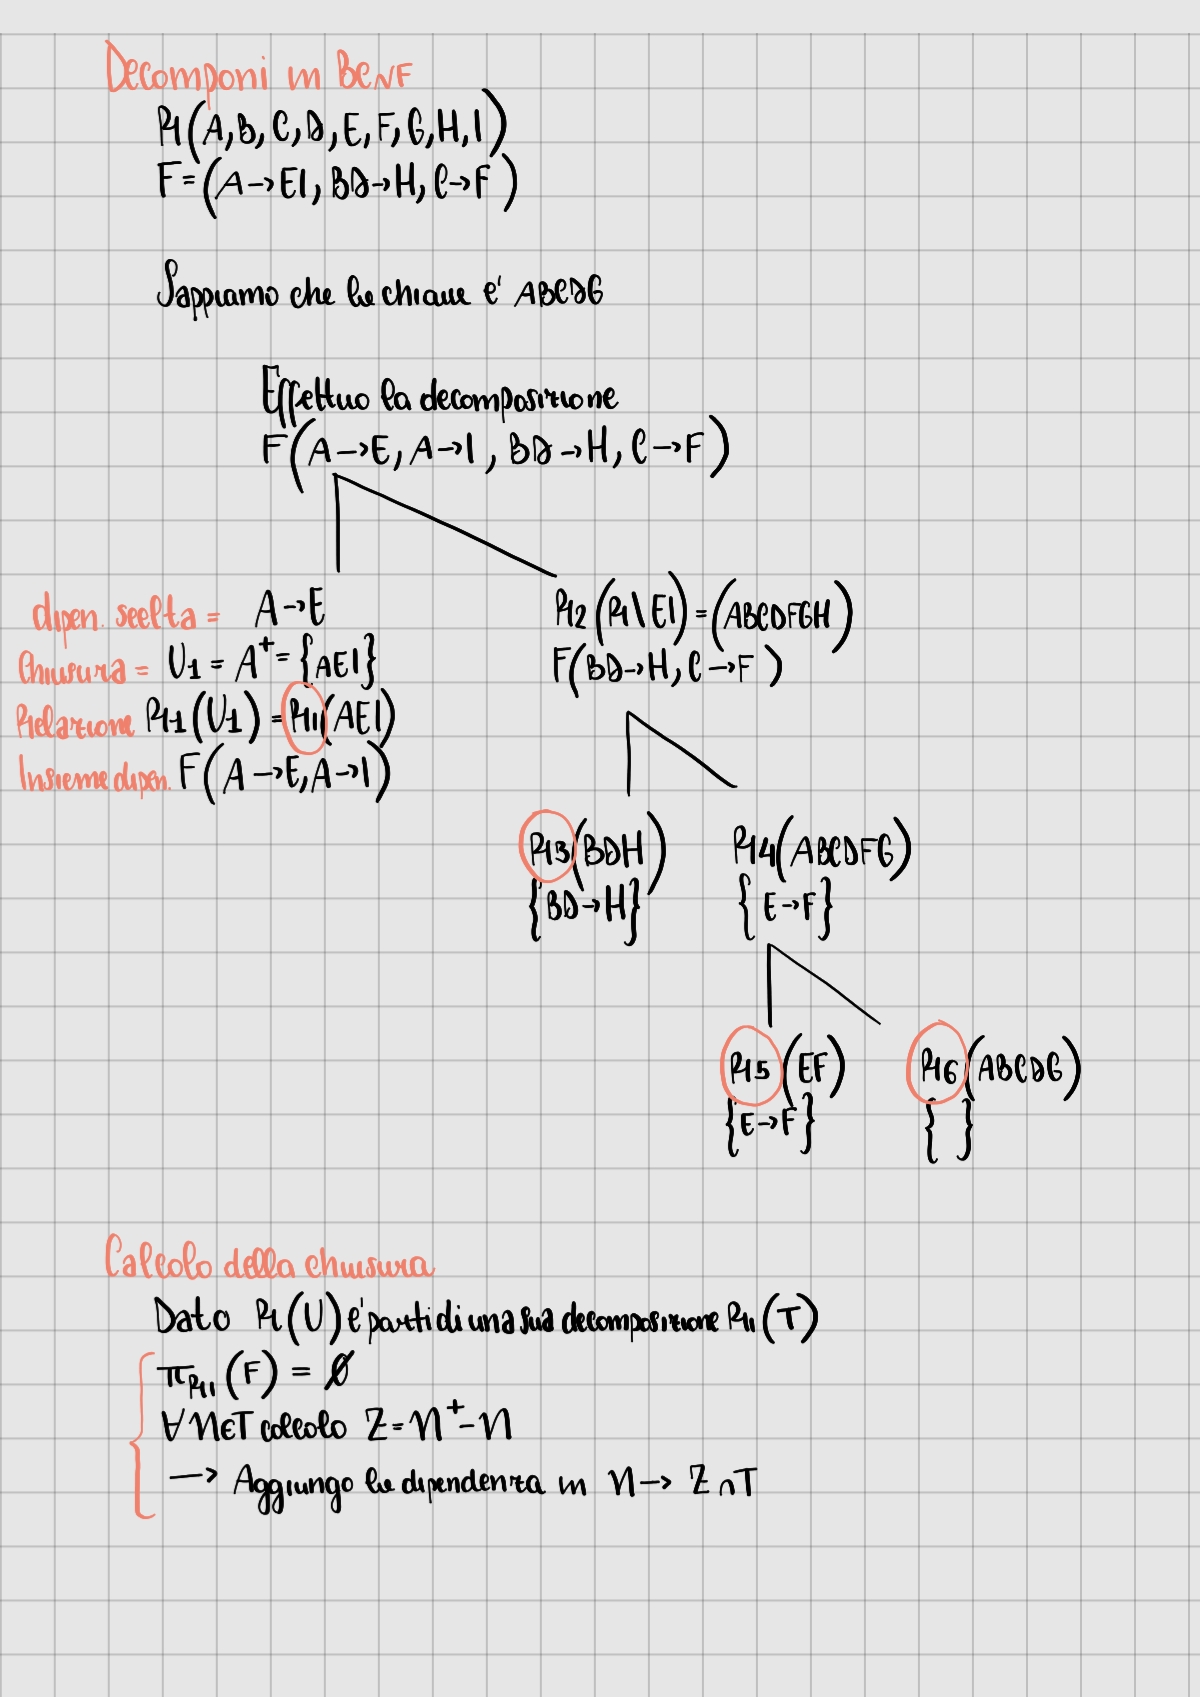 Decomponi in BCNF
R(A,B,C,D,E,F,G,H,I)
F=(A→EI, BD→H, C→F)
Sappiamo che la chiave e' ABCDG
Effettuo la decomposizione
F(A→E, A→I, BD→H, C→F)
dipen. scelta = A→E
Chiusura = U1 = A⁺ = {AEI}
Relazione R1(U1) = R1(AEI)
Insieme dipen. F(A→E, A→I)
R2(R\EI) = (ABCDFGH)
F(BD→H, C→F)
R3(BDH)
{BD→H}
R4(ABCDFG)
{E→F}
R5(EF)
{E→F}
R6(ABCDG)
{ }
Calcolo della chiusura
Dato R(U) e' parti di una sua decomposizione R1(T)
πR1(F) = Ø
∀N∈T calcolo Z=N⁺-N
→ Aggiungo la dipendenza in N→ Z∩T